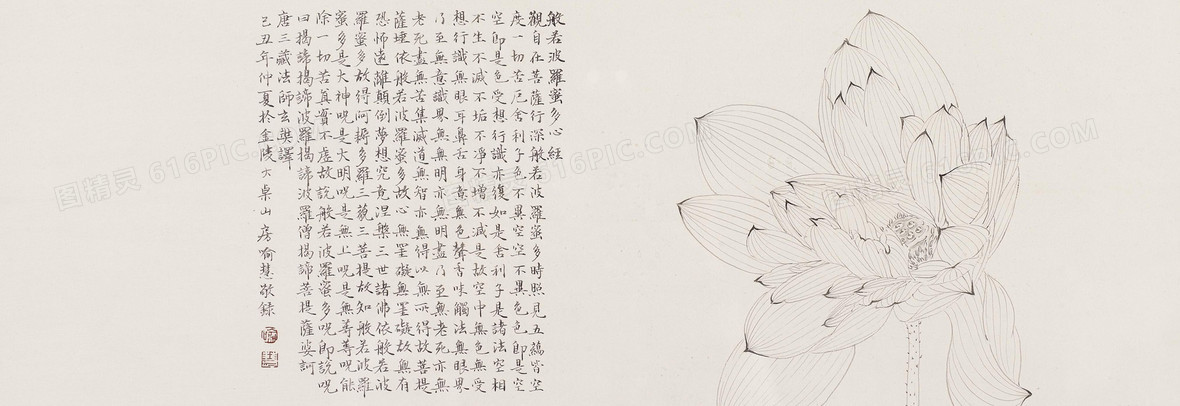 般若波羅蜜多心經
觀自在菩薩行深般若波羅蜜多時照見五蘊皆空
度一切苦厄舍利子色不異空空不異色色即是空
空即是色受想行識亦復如是舍利子是諸法空相
不生不滅不垢不淨不增不減是故空中無色無受
想行識無眼耳鼻舌身意無色聲香味觸法無眼界
乃至無意識界無無明亦無無明盡乃至無老死亦無
老死盡無苦集滅道無智亦無得以無所得故菩提
薩埵依般若波羅蜜多故心無罣礙無罣礙故無有
恐怖遠離顛倒夢想究竟涅槃三世諸佛依般若波
羅蜜多故得阿耨多羅三藐三菩提故知般若波羅
蜜多是大神呪是大明呪是無上呪是無等等呪能
除一切苦真實不虛故說般若波羅蜜多呪即說呪
曰揭諦揭諦波羅揭諦波羅僧揭諦菩提薩婆訶
唐三藏法師玄奘譯
己丑年仲夏於金陵大桌山房喻慧敬錄
图精灵 616PIC.COM